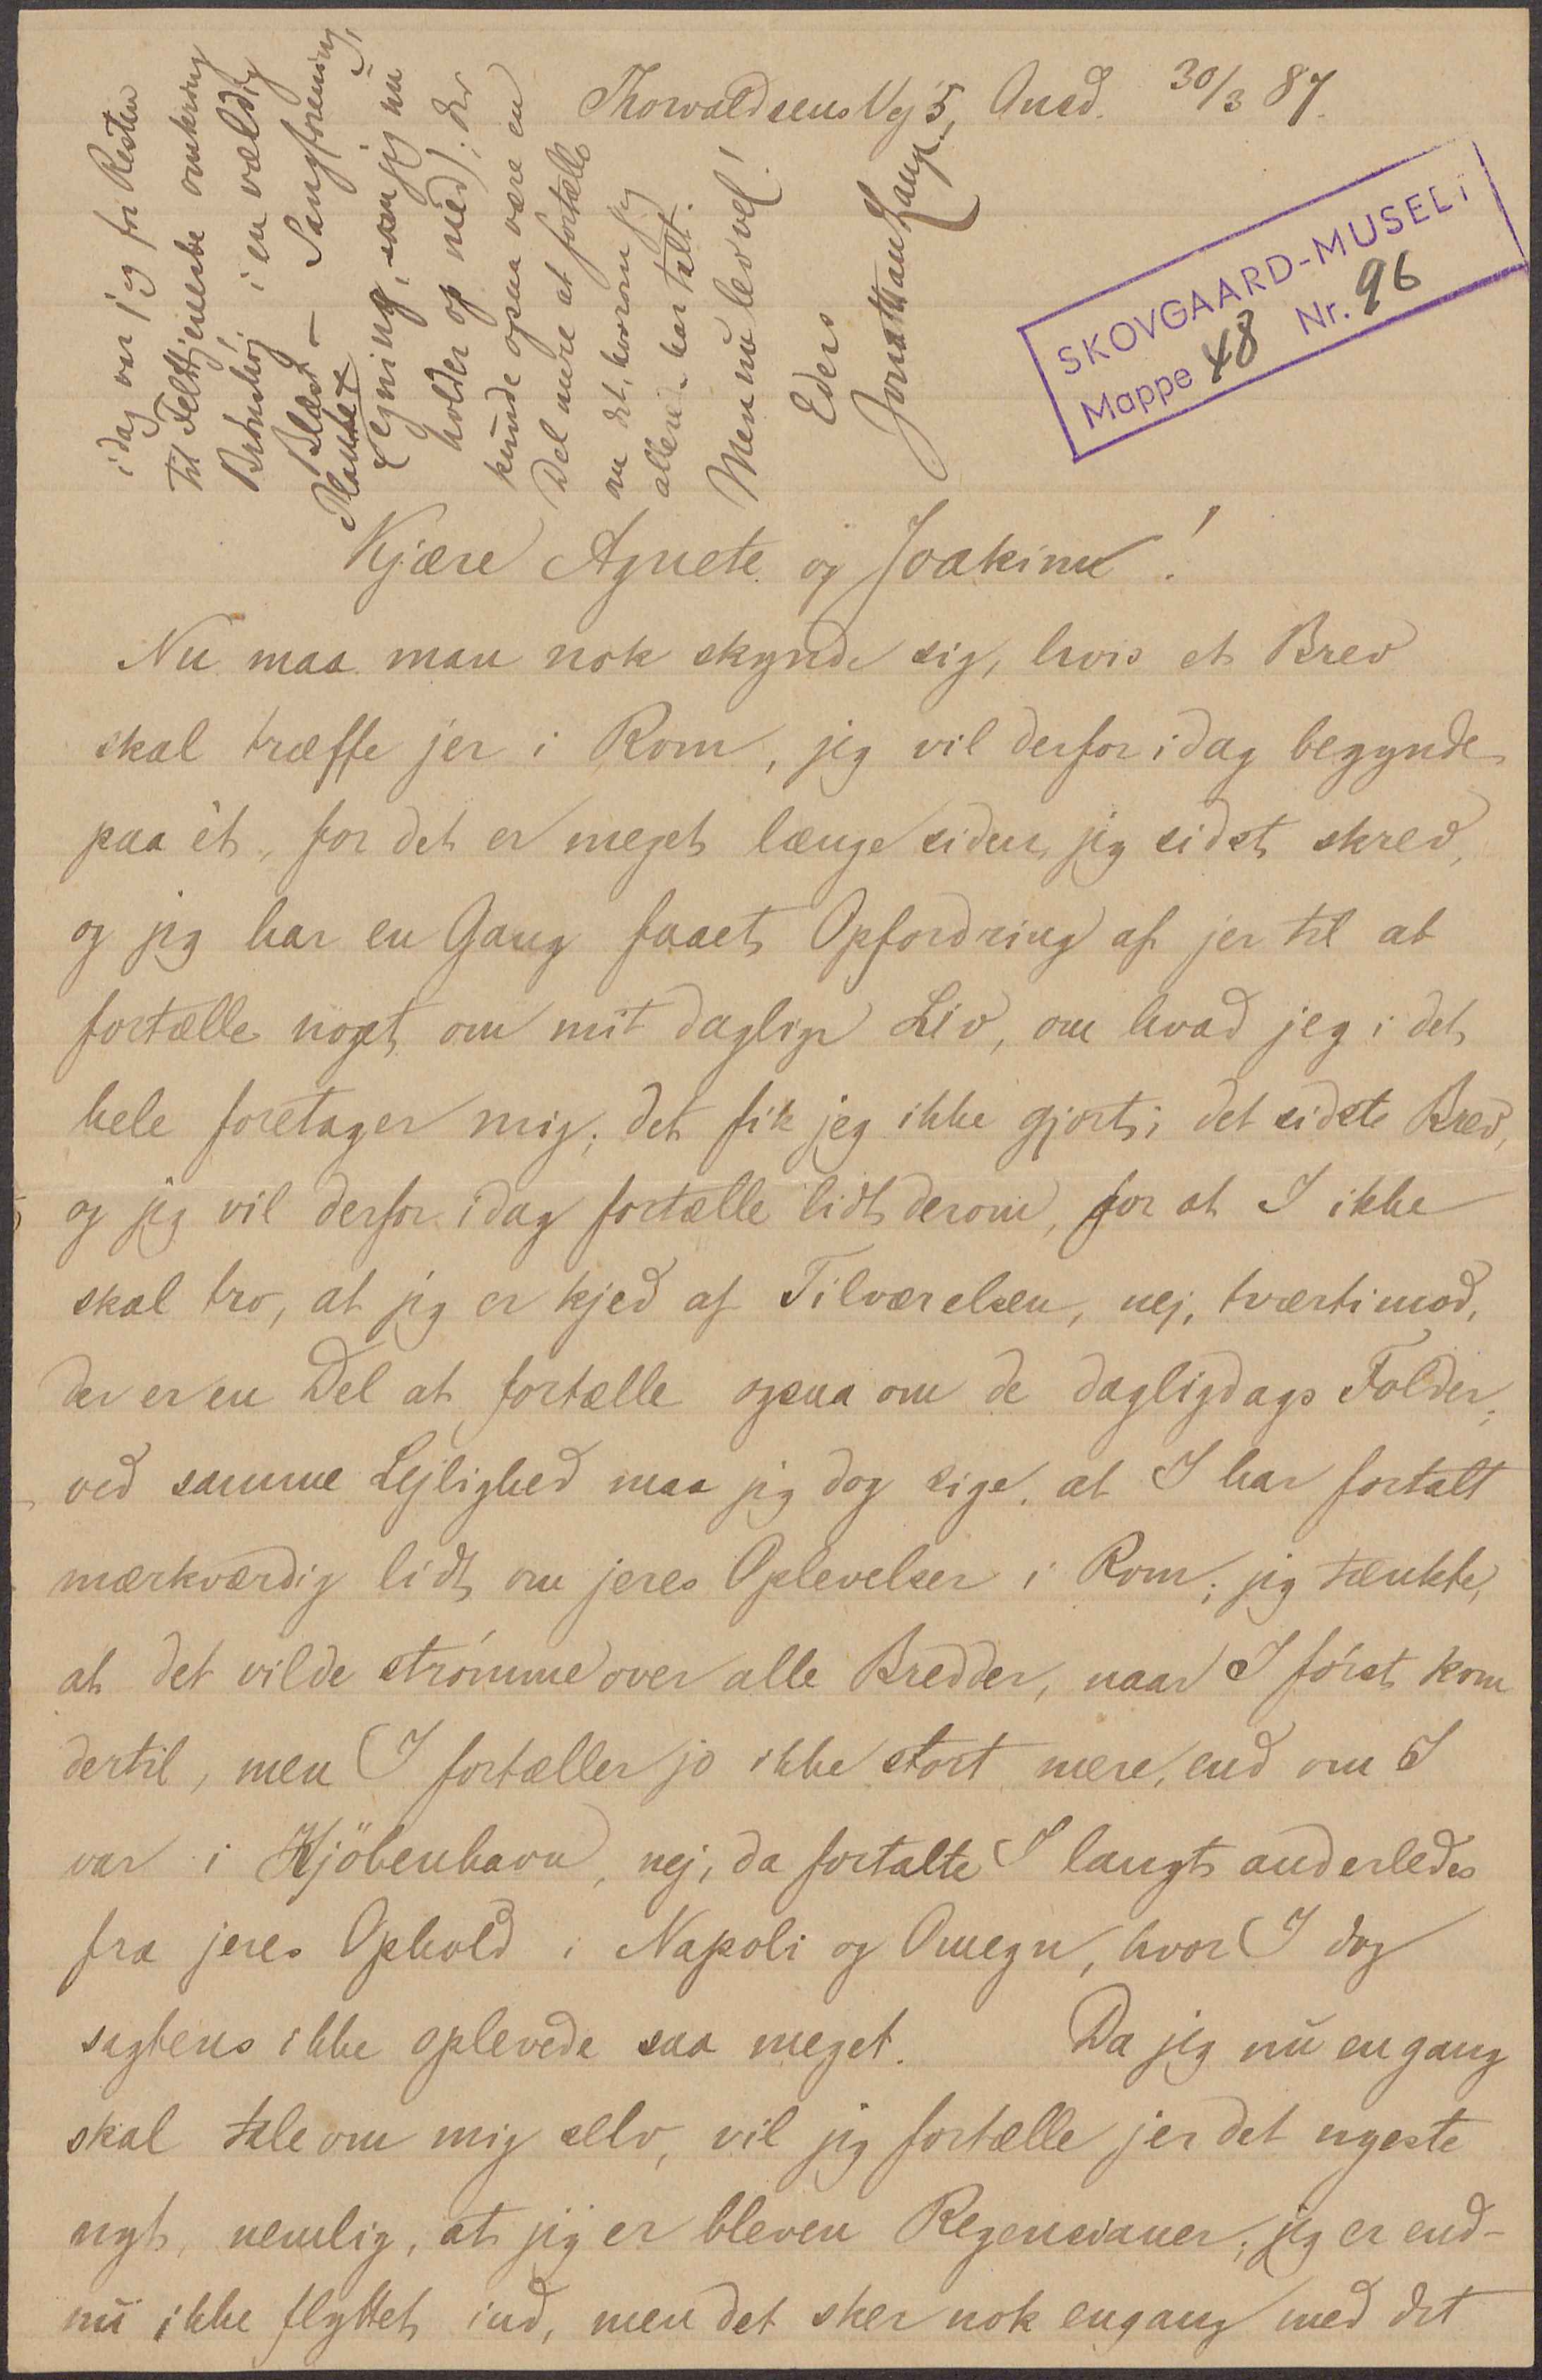 Thorvaldsens Vej 5, Onsd. 30/3 87.
SKOVGAARD-MUSEET
Mappe 48 Nr. 96
Kjære Agnete og Joakim!
Nu maa man nok skynde sig, hvis et Brev
skal træffe jer i Rom, jeg vil derfor idag begynde
paa ét, for det er meget længe siden, jeg sidst skrev,
og jeg har en Gang faaet Opfordring af jer til at
fortælle noget om mit daglige Liv, om hvad jeg i det
hele foretager mig; det fik jeg ikke gjort i det sidste Brev,
og jeg vil derfor idag fortælle lidt derom, for at I ikke
skal tro, at jeg er kjed af Tilværelsen, nej, tværtimod,
der er en Del at fortælle ogsaa om de dagligdags Folder;
ved samme Lejlighed maa jeg dog sige, at I har fortalt
mærkværdig lidt om jeres Oplevelser i Rom; jeg tænkte,
at det vilde strömme over alle Bredder, naar I först kom
dertil, men I fortæller jo ikke stort mere, end om I
var i Kjöbenhavn, nej, da fortalte I langt anderledes
fra jeres Ophold i Napoli og Omegn, hvor I dog
sagtens ikke oplevede saa meget. Da jeg nu engang
skal tale om mig selv, vil jeg fortælle jer det nyeste
nyt, nemlig, at jeg er bleven Regensianer; jeg er end-
nu ikke flyttet ind, men det sker nok engang med det
idag var jeg for Resten
til Felttjeneste omkring
Brönshöj i en vældig
Blæst – Sangforening,
Plantet
Tegning, som jeg nu
holder op med); der
kunde ogsaa være en
Del mere at fortælle
om det, hvorom jeg
allerede har talt.
Men nu lev vel!
Eders
Jonathan Lange.